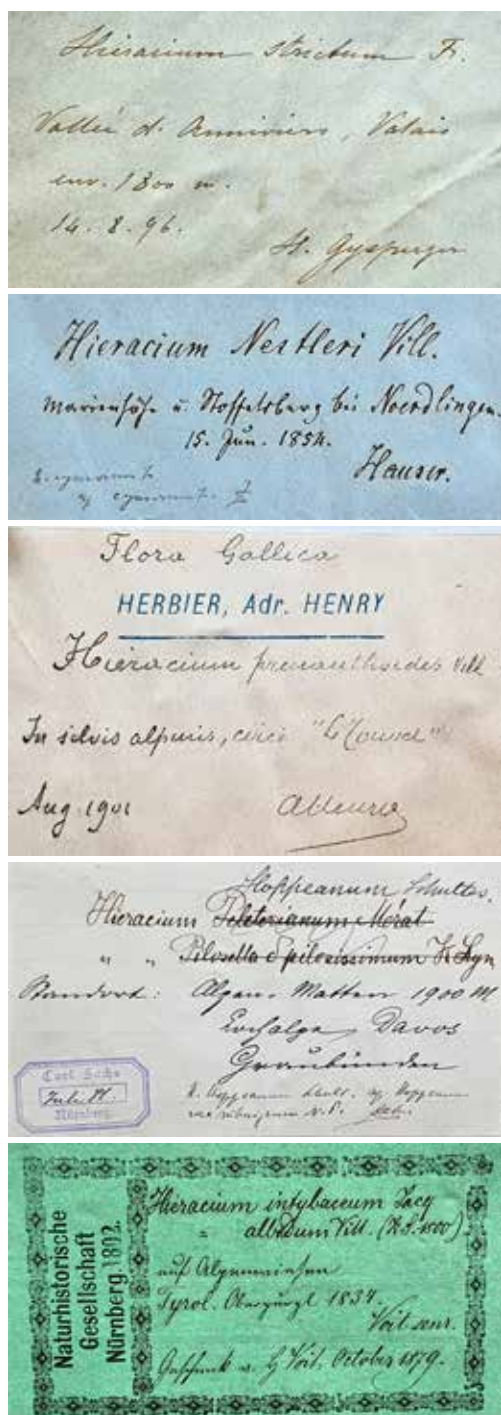 Hieracium strictum Fr.
Vallée d'Anniviers, Valais
env. 1800 m.
14. 8. 96.
H. Gysperger
Hieracium Nestleri Vill.
Marienhöhe u. Stoffelsberg bei Noerdlingen.
15. Jun. 1854.
Hauser.
Flora Gallica
HERBIER, Adr. HENRY
Hieracium prenanthoides Vill
In silvis alpinis, circa
Aug 1901
Hoppeanum Schultes.
Hieracium Peleterianum Mérat
" " Pilosella pilosissimum
Standort: Alpen-Matten 1900 M
Davos
Graubünden
Carl Sachs
Juli
Nürnberg.
H. Hoppeanum Schult.
N. P.
Naturhistorische
Gesellschaft
Nürnberg 1802.
Hieracium intybaceum Jacq
" albidum Vill.
auf Alpenwiesen
Tyrol. Obergurgl 1834.
Voit senr.
Geschenk v. Voit. October 1879.